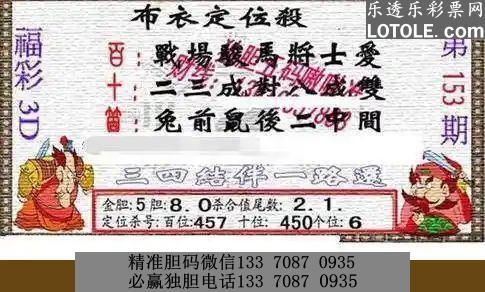 乐透乐彩票网
LOTOLE.COM
布衣定位殺
福彩3D
第153期
百：戰場駿馬將士愛
十：二三成對八成雙
個：兔前鼠後二中間
三四結伴一路選
金胆:5胆:8.0杀合值尾数:2.1.
定位杀号:百位:457 十位:450个位:6
精准胆码微信133 7087 0935
必赢独胆电话133 7087 0935